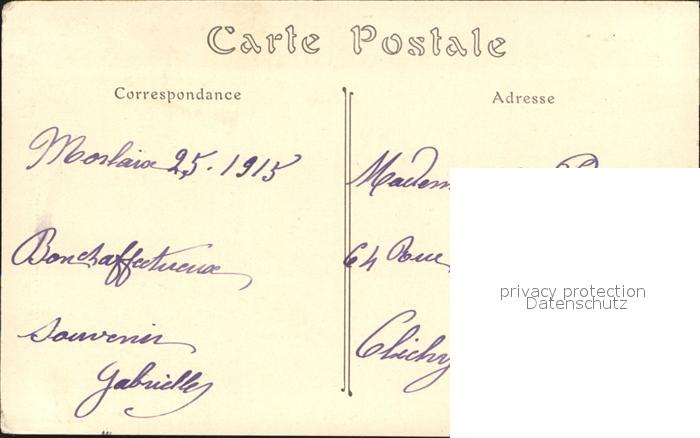 Carte Postale
Correspondance
Adresse
Morlaix 25. 1915
Bon et affectueux
souvenir
Gabrielle
Madem
64 Rue
Clichy
privacy protection
Datenschutz